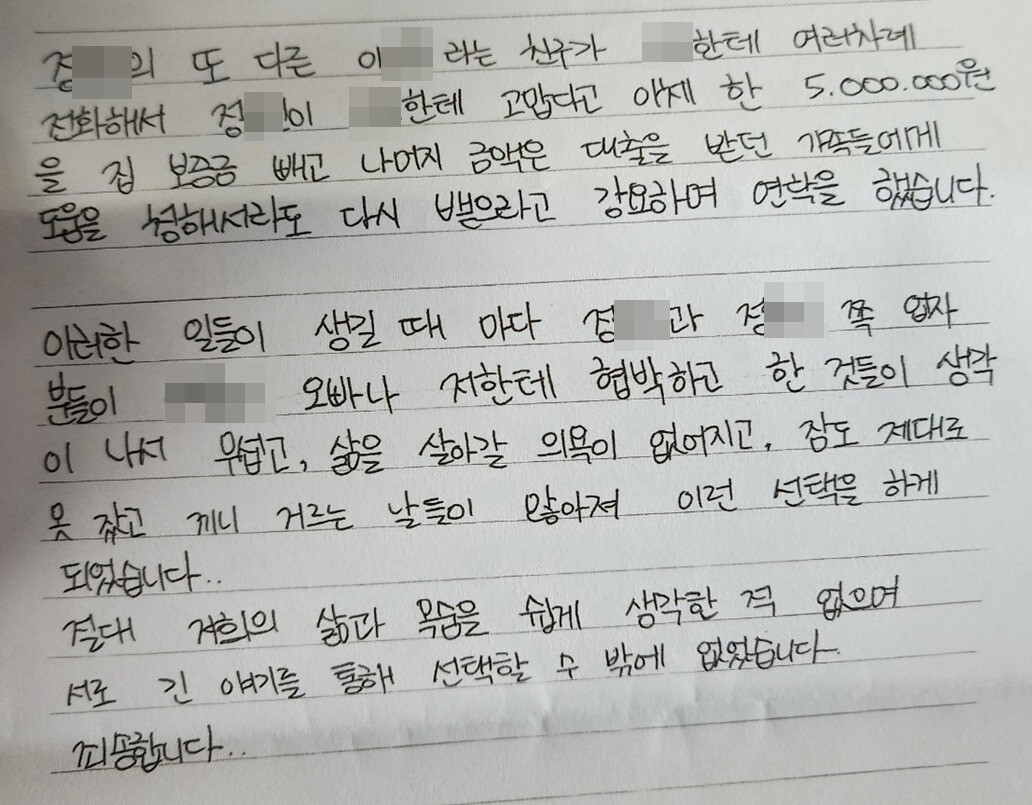 정 의 또 다른 이 라는 친구가 한테 여러차례
전화해서 정 이 한테 고맙다고 이체 한 5.000.000원
을 집 보증금 빼고 나머지 금액은 대출을 받던 가족들에게
도움을 청해서라도 다시 뱉으라고 강요하며 연락을 했습니다.
이러한 일들이 생길 때 마다 정 과 정 쪽 업자
분들이 오빠나 저한테 협박하고 한 것들이 생각
이 나서 무섭고, 삶을 살아갈 의욕이 없어지고, 잠도 제대로
못 잤고 끼니 거르는 날들이 많아져 이런 선택을 하게
되었습니다..
절대 저희의 삶과 목숨을 쉽게 생각한 적 없으며
서로 긴 얘기를 통해 선택할 수 밖에 없었습니다.
죄송합니다..